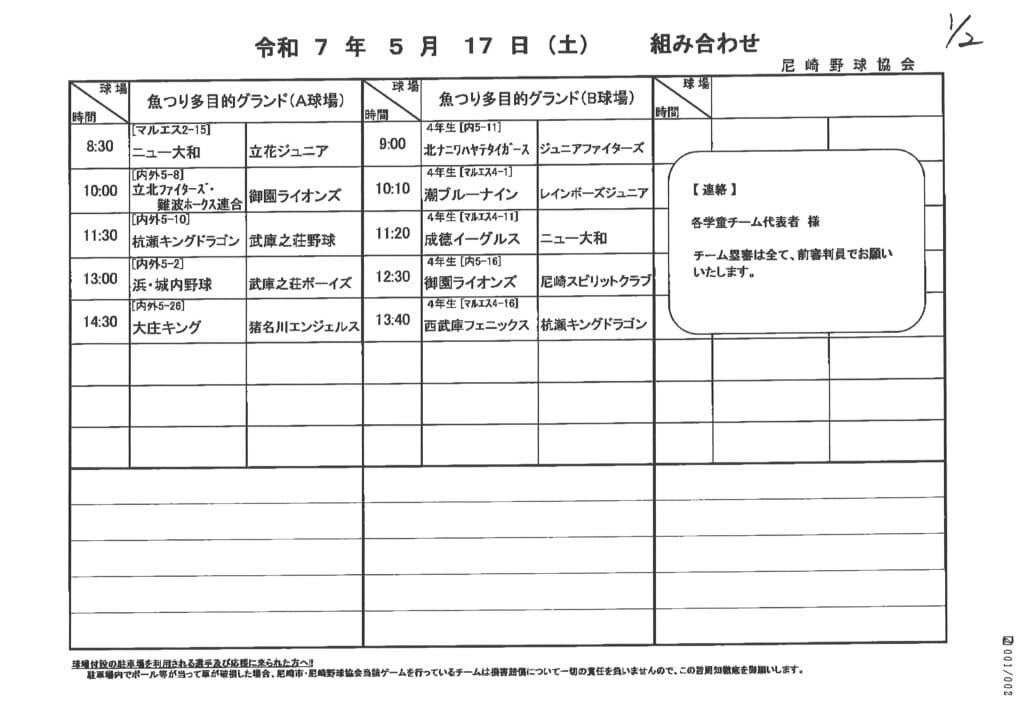 1/2
令和 7 年 5 月 17 日 (土) 組み合わせ
尼崎野球協会
球場
時間
魚つり多目的グランド(A球場)
球場
時間
魚つり多目的グランド(B球場)
球場
時間
8:30
[マルエス2-15]
ニュー大和
立花ジュニア
9:00
4年生 [内5-11]
北ナニワハヤテタイガース
ジュニアファイターズ
10:00
[内外5-8]
立北ファイターズ・
難波ホークス連合
御園ライオンズ
10:10
4年生 [マルエス4-1]
潮ブルーナイン
レインボーズジュニア
11:30
[内外5-10]
杭瀬キングドラゴン
武庫之荘野球
11:20
4年生 [マルエス4-11]
成徳イーグルス
ニュー大和
13:00
[内外5-2]
浜・城内野球
武庫之荘ボーイズ
12:30
4年生 [内5-16]
御園ライオンズ
尼崎スピリットクラブ
14:30
[内外5-26]
大庄キング
猪名川エンジェルス
13:40
4年生 [マルエス4-16]
西武庫フェニックス
杭瀬キングドラゴン
【 連絡 】
各学童チーム代表者 様
チーム塁審は全て、前審判員でお願い
いたします。
球場付設の駐車場を利用される選手及び応援に来られた方へ!!
駐車場内でボール等が当って車が破損した場合、尼崎市・尼崎野球協会当該ゲームを行っているチームは損害賠償について一切の責任を負いませんので、この旨周知徹底を御願いします。
001/002